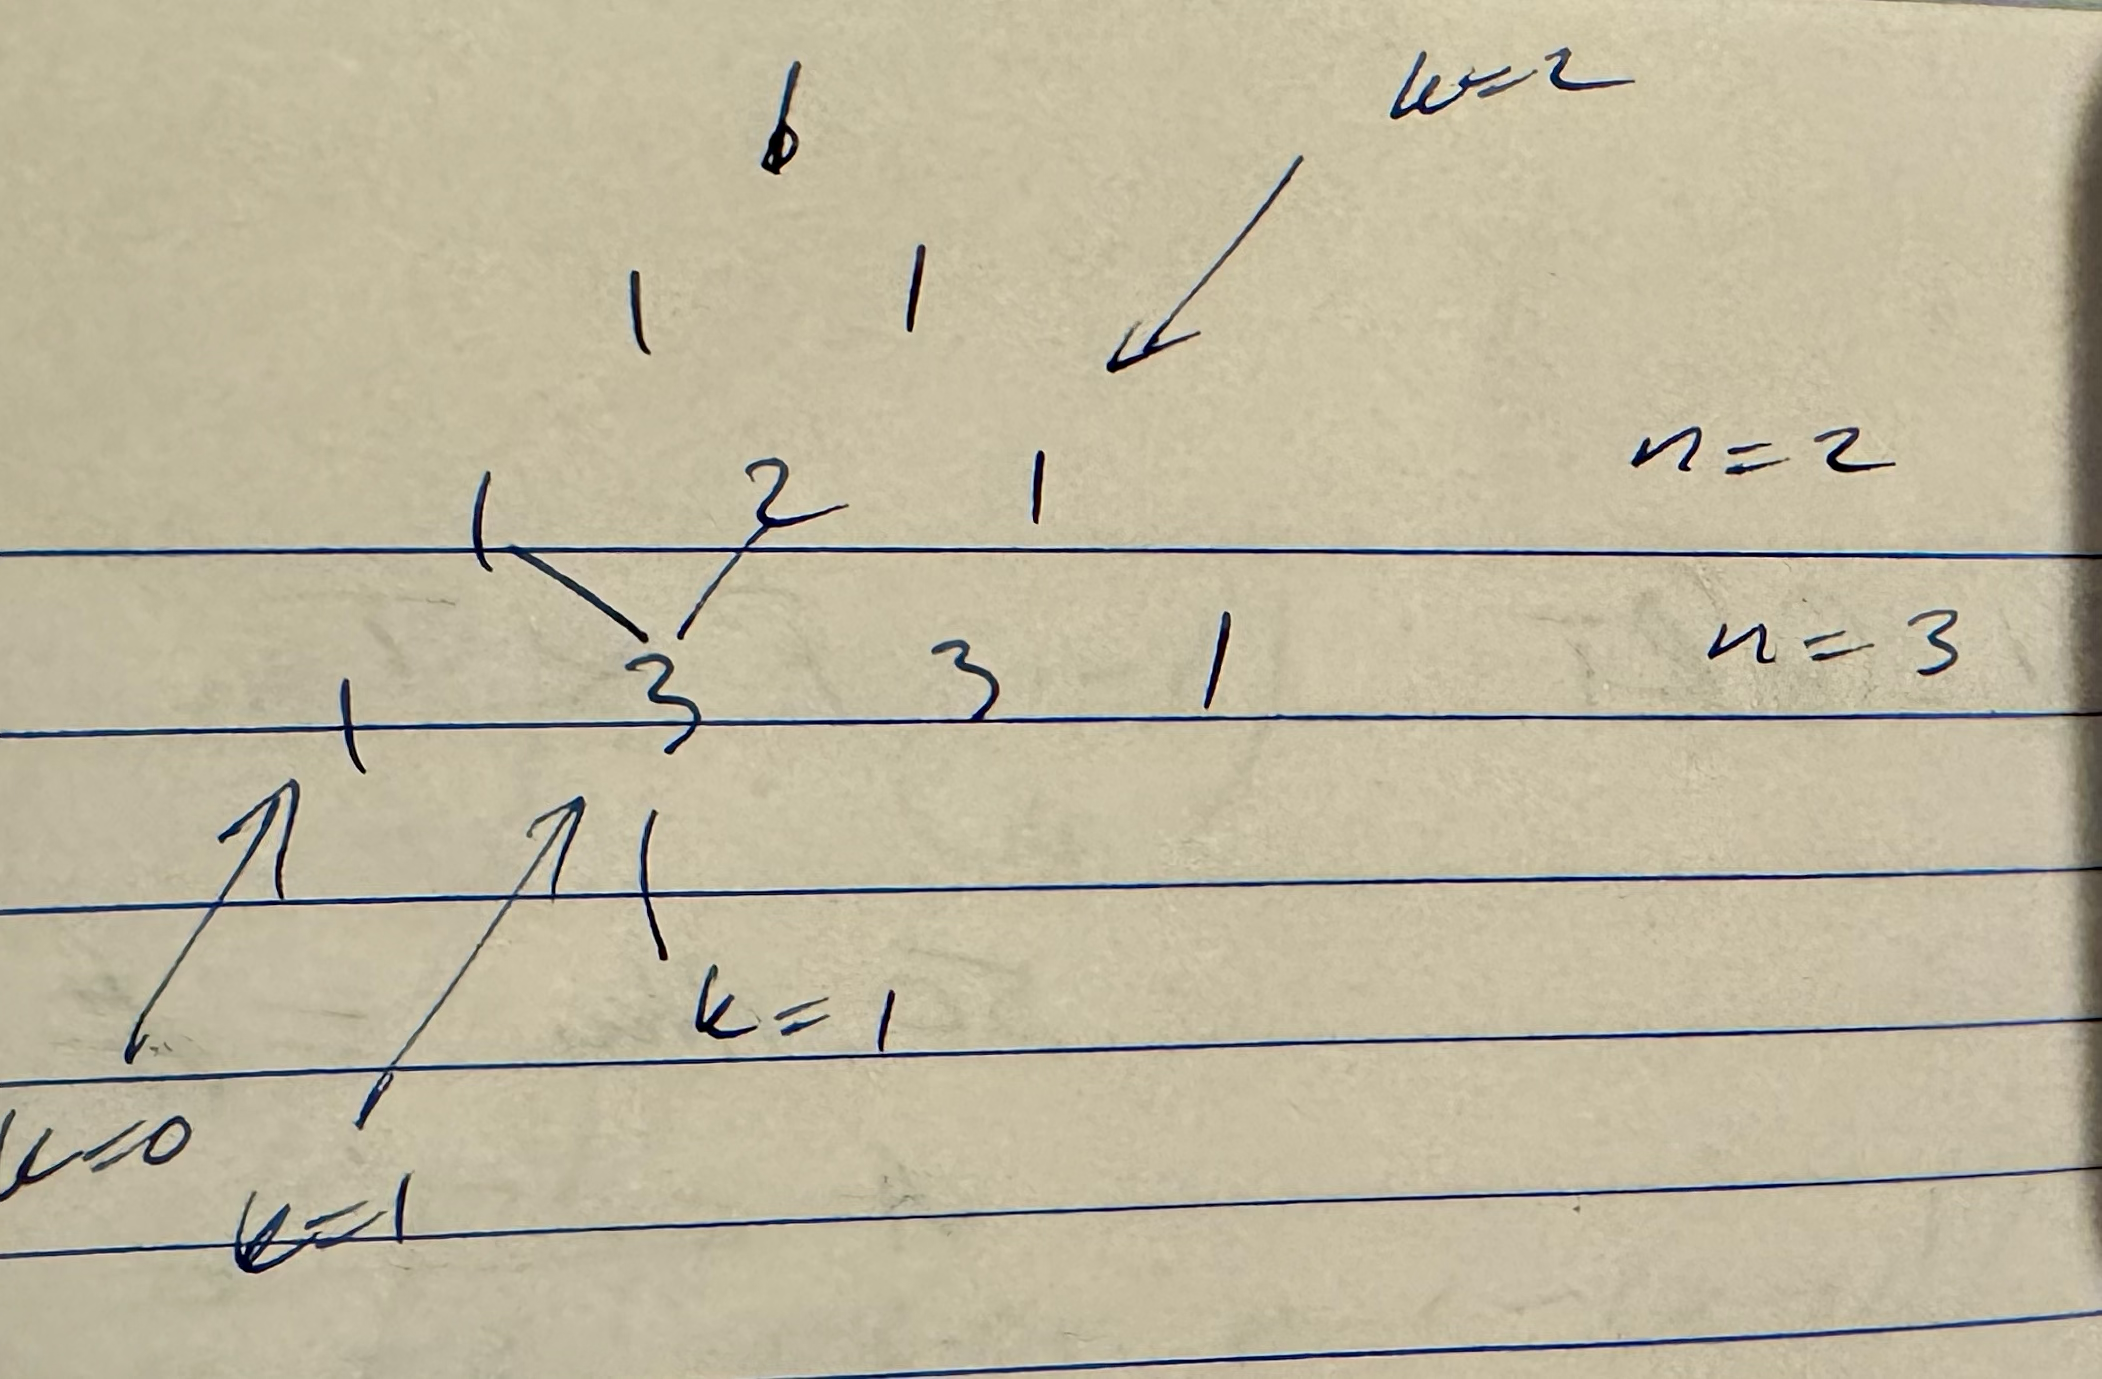 k=2
1
1 1
1 2 1 n=2
1 3 3 1 n=3
k=1
k=0
k=1